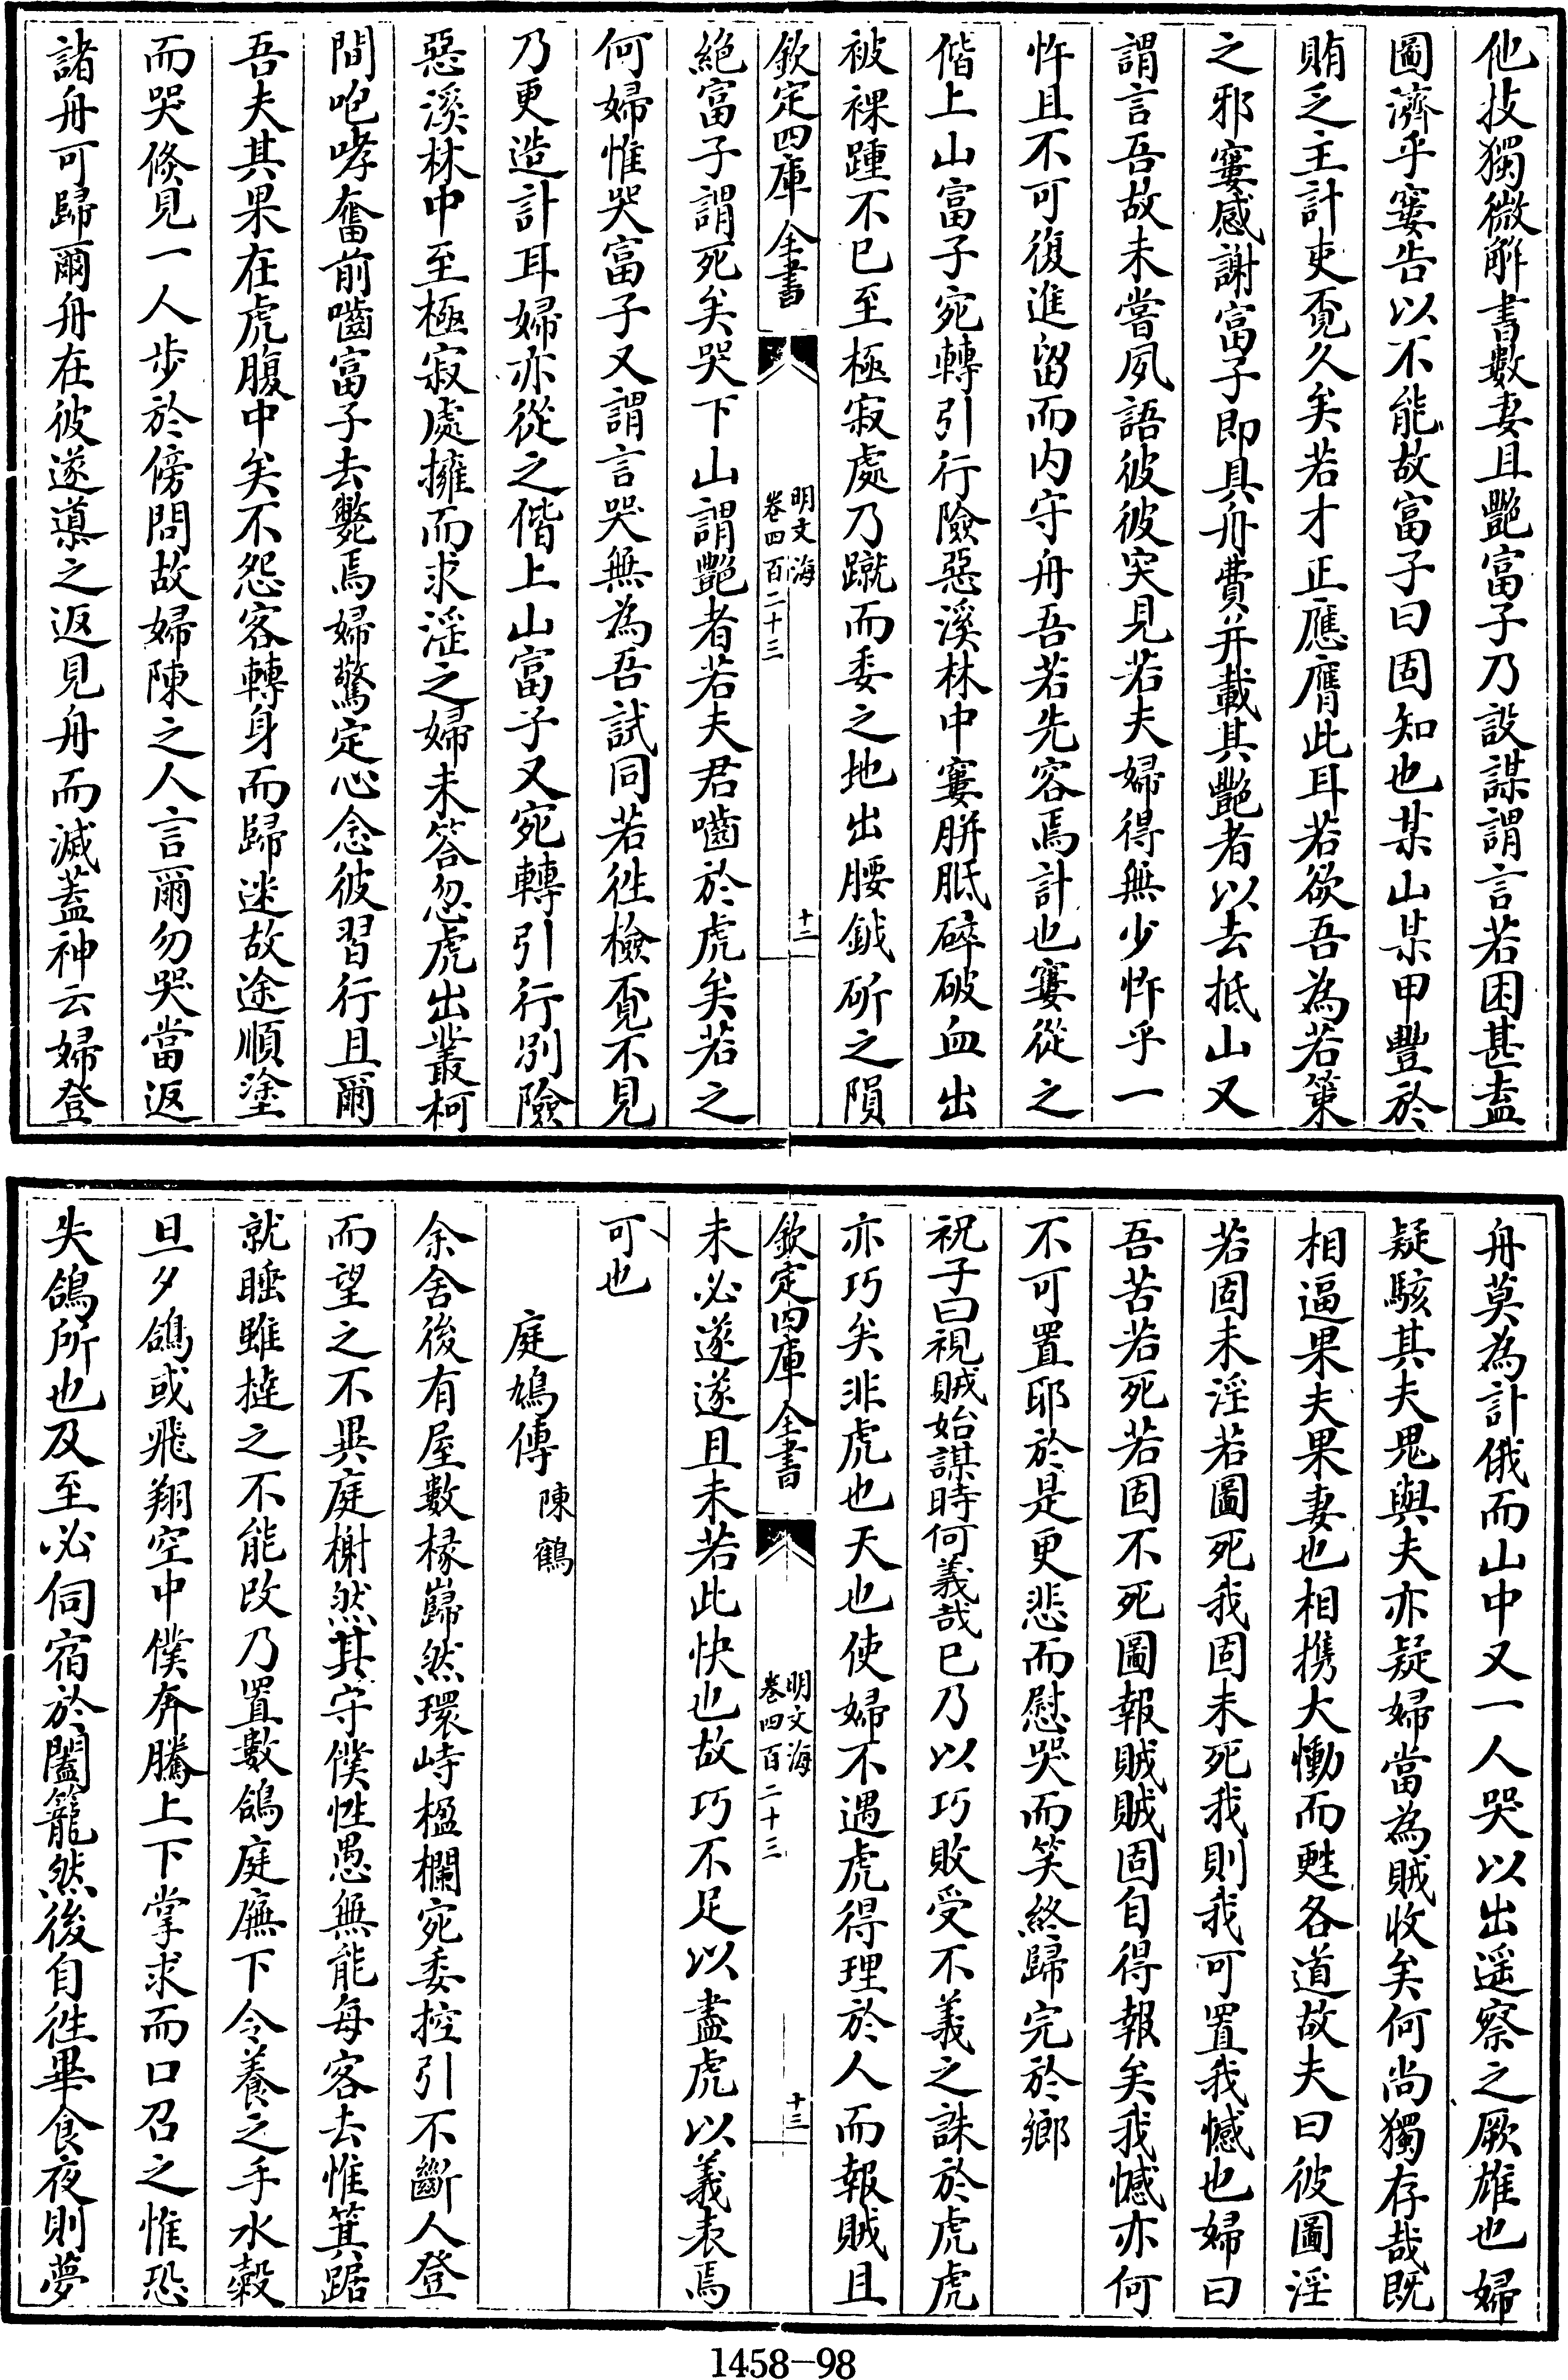 他技獨微解書數妻且艷富子乃設謀謂言若困甚盍
圖濟乎窶告以不能故富子曰固知也某山某甲豐於
賄乏主計吏覔久矣若才正應膺此耳若欲吾為若策
之邪窶感謝富子即具舟費并載其艷者以去抵山又
謂言吾故未嘗夙語彼彼突見若夫婦得無少怍乎一
怍且不可復進留而内守舟吾若先容焉計也窶從之
偕上山富子宛轉引行險惡溪林中窶胼胝碎破血出
被裸踵不已至極寂處乃蹴而委之地出腰鉞斫之隕
欽定四庫全書
明文海
卷四百二十三
十二
絕富子謂死矣哭下山謂艷者若夫君嚙於虎矣若之
何婦惟哭富子又謂言哭無為吾試同若往檢覔不見
乃更造計耳婦亦從之偕上山富子又宛轉引行别險
惡溪林中至極寂處擁而求淫之婦未答忽虎出叢柯
間咆哮奮前嚙富子去斃焉婦驚定心念彼習行且爾
吾夫其果在虎腹中矣不怨客轉身而歸迷故途順塗
而哭倏見一人步於傍問故婦陳之人言爾勿哭當返
諸舟可歸爾舟在彼遂導之返見舟而滅蓋神云婦登
舟莫為計俄而山中又一人哭以出遥察之厥雄也婦
疑駭其夫鬼與夫亦疑婦當為賊收矣何尚獨存哉既
相逼果夫果妻也相携大慟而甦各道故夫曰彼圖淫
若固未淫若圖死我固未死我則我可置我憾也婦曰
吾苦若死若固不死圖報賊賊固自得報矣我憾亦何
不可置耶於是更悲而慰哭而笑終歸完於鄉
祝子曰視賊始謀時何義哉已乃以巧敗受不義之誅於虎虎
亦巧矣非虎也天也使婦不遇虎得理於人而報賊且
欽定四庫全書
明文海
卷四百二十三
十三
未必遂遂且未若此快也故巧不足以盡虎以義表焉
可也
庭鴆傳 陳鶴
余舍後有屋數椽巋然環峙楹欄宛委控引不斷人登
而望之不異庭榭然其守僕性愚無能每客去惟箕踞
就睡雖撻之不能改乃置數鴿庭廡下令養之手水穀
旦夕鴿或飛翔空中僕奔騰上下掌求而口召之惟恐
失鴿所也及至必伺宿於闔籠然後自往畢食夜則夢
1458-98